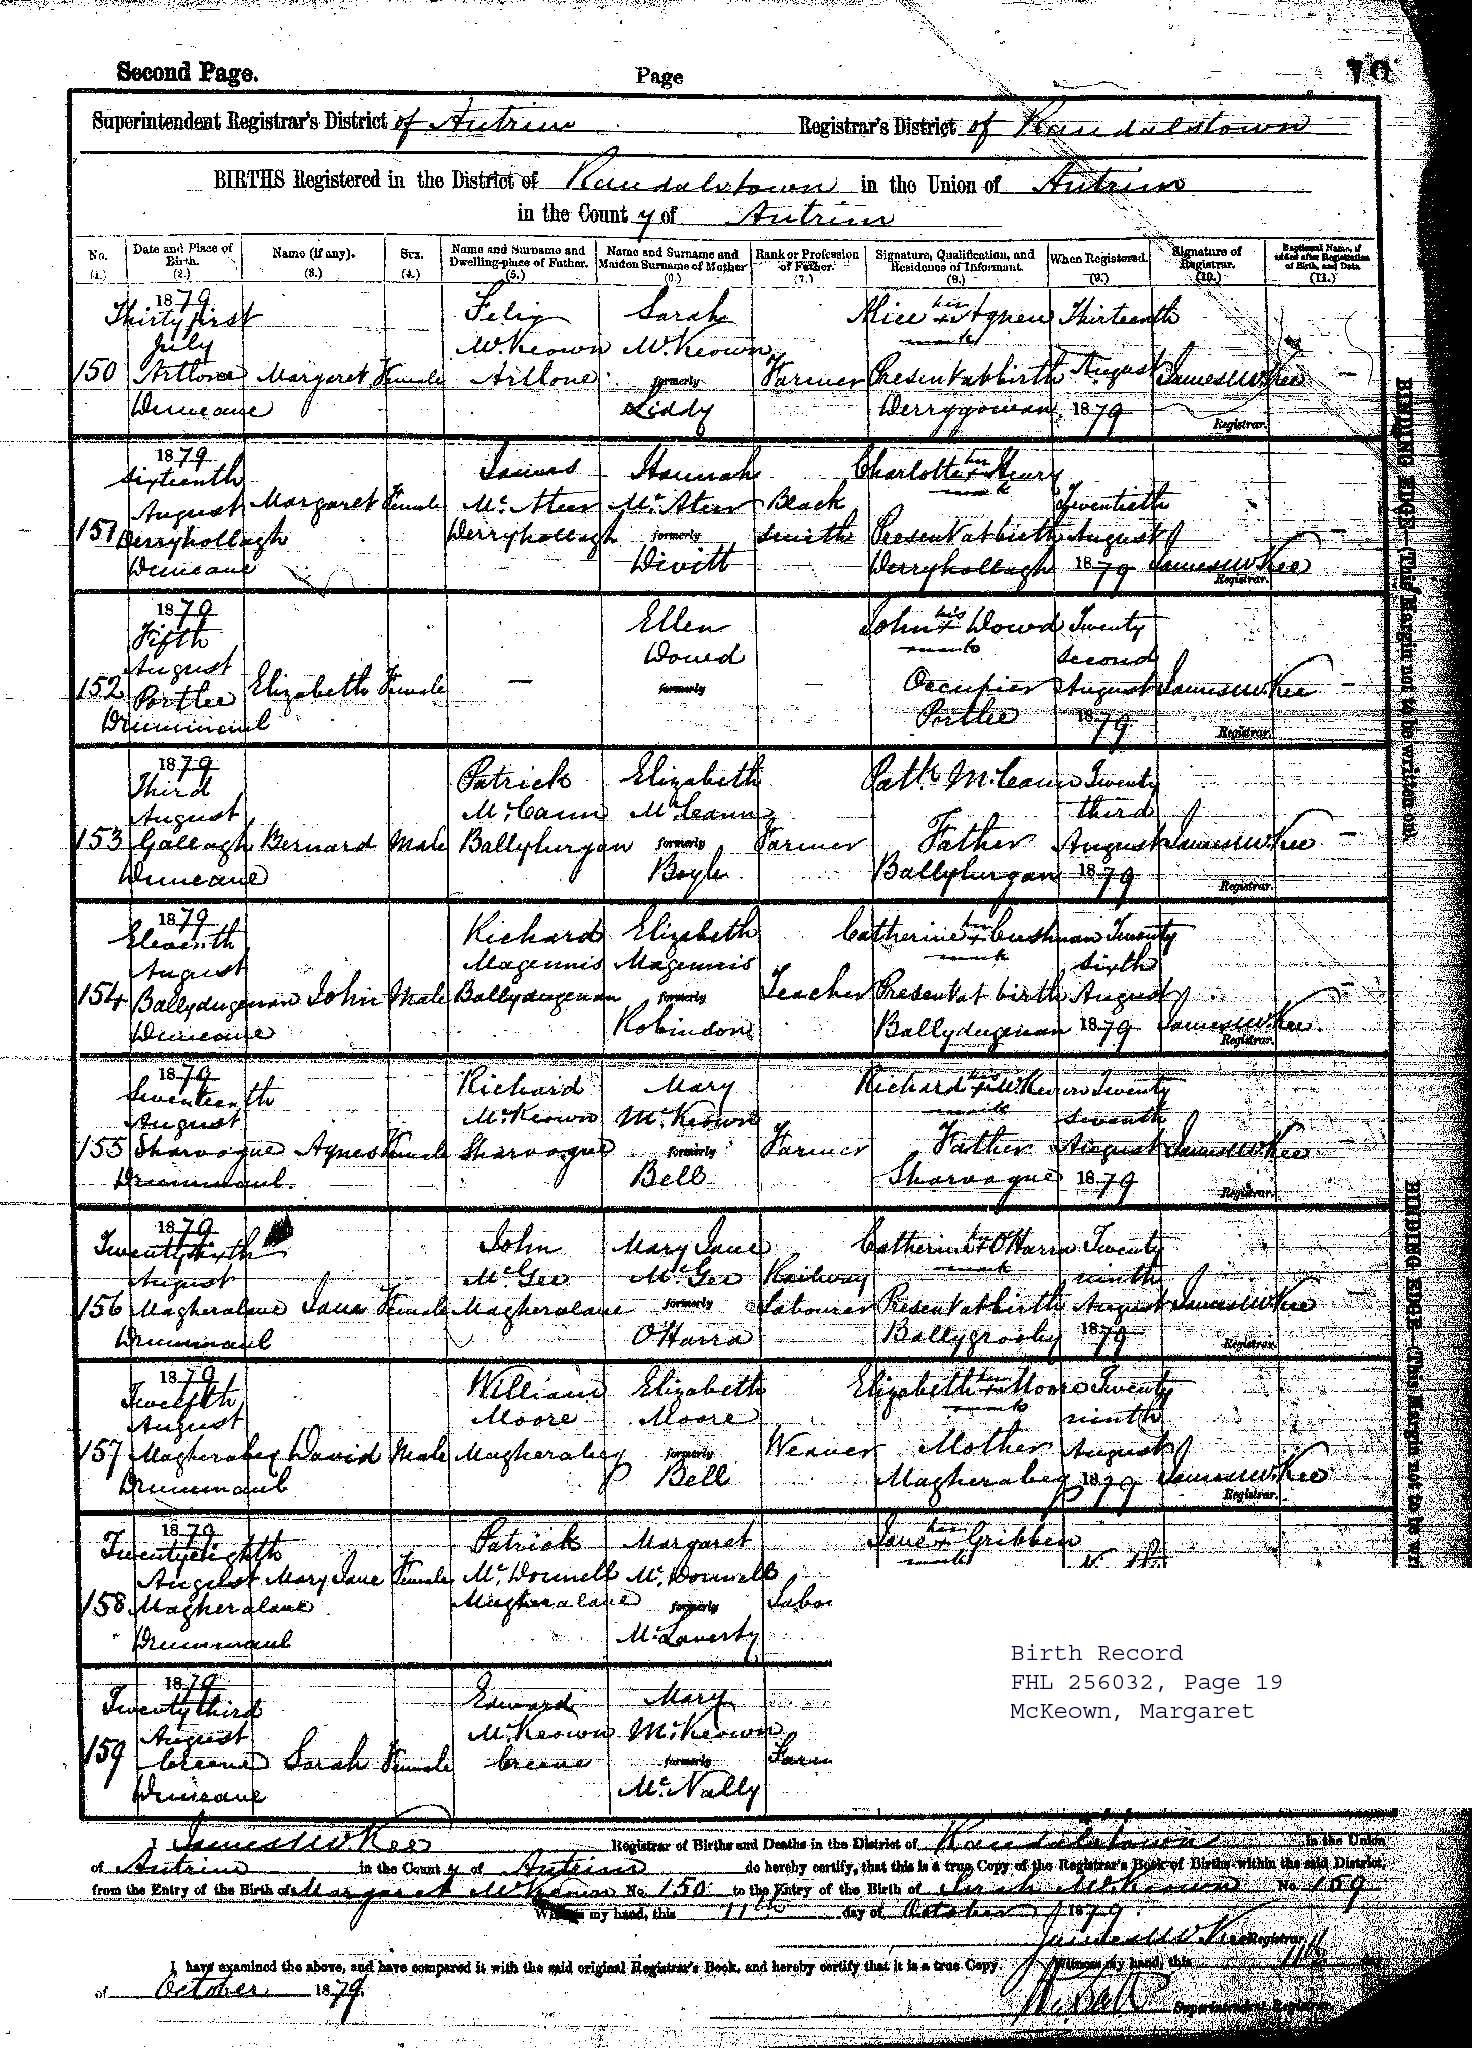 Second Page.
Page
19
Superintendent Registrar's District of Antrim Registrar's District of Randalstown
BIRTHS Registered in the District of Randalstown in the Union of Antrim
in the County of Antrim
No. (1.) Date and Place of Birth. (2.) Name (if any). (3.) Sex. (4.) Name and Surname and Dwelling-place of Father. (5.) Name and Surname and Maiden Surname of Mother (6.) Rank or Profession of Father. (7.) Signature, Qualification, and Residence of Informant. (8.) When Registered. (9.) Signature of Registrar. (10.) Baptismal Name, if added after Registration of Birth, and Date. (11.)
150 1879 Thirty first July Artlone Duneane Margaret Female Felix McKeown Artlone Sarah McKeown formerly Liddy Farmer Alice her x mark Agnew Present at birth Derrygowan Thirteenth August 1879 James W. Kee Registrar.
151 1879 Sixteenth August Derryhollagh Duneane Margaret Female James McAteer Derryhollagh Hannah McAteer formerly Divitt Black smith Charlotte her x mark Henry Present at birth Derryhollagh Twentieth August 1879 James W. Kee Registrar.
152 1879 Fifth August Portlee Drummaul Elizabeth Female — Ellen Dowd formerly — John his x mark Dowd Occupier Portlee Twenty second August 1879 James W. Kee Registrar.
153 1879 Third August Gallagh Duneane Bernard Male Patrick McCann Ballylurgan Elizabeth McCann formerly Boyle Farmer Patk. McCann Father Ballylurgan Twenty third August 1879 James W. Kee Registrar.
154 1879 Eleventh August Ballydugenan Duneane John Male Richard Magennis Ballydugenan Elizabeth Magennis formerly Robindon Teacher Catherine her x mark Cushnan Present at birth Ballydugenan Twenty sixth August 1879 James W. Kee Registrar.
155 1879 Seventeenth August Sharvogue Drummaul. Agnes Female Richard McKeown Sharvogue Mary McKeown formerly Bell Farmer Richard his x mark McKeown Father Sharvogue Twenty seventh August 1879 James W. Kee Registrar.
156 1879 Twenty sixth August Magheralane Drummaul Jane Female John McGee Magheralane Mary Jane McGee formerly O'Harra Railway Labourer Catherine x O'Harra mark Present at birth Ballygrooby Twenty ninth August 1879 James W. Kee Registrar.
157 1879 Twelfth August Magherabeg Drummaul David Male William Moore Magherabeg Elizabeth Moore formerly Bell Weaver Elizabeth her x mark Moore Mother Magherabeg Twenty ninth August 1879 James W. Kee Registrar.
158 1879 Twenty eighth August Magheralane Drummaul Mary Jane Female Patrick McDonnell Magheralane Margaret McDonnell formerly McLaverty Labou Jane her x mark Gribben
159 1879 Twenty third August Creeve Duneane Sarah Female Edward McKeown Creeve Mary McKeown formerly McNally Farm
Birth Record
FHL 256032, Page 19
McKeown, Margaret
I James W. Kee Registrar of Births and Deaths in the District of Randalstown in the Union
of Antrim in the County of Antrim do hereby certify, that this is a true Copy of the Registrar's Book of Births within the said District,
from the Entry of the Birth of Margaret McKeown No. 150 to the Entry of the Birth of Sarah McKeown No 159
Witness my hand, this 11th day of October 1879.
James W. Kee Registrar.
I have examined the above, and have compared it with the said original Registrar's Book, and hereby certify that it is a true Copy. Witness my hand, this 11th day
of October 1879.
Superintendent Registrar.
BINDING EDGE—(This Margin not to be written on)
BINDING EDGE—(This Margin not to be wri